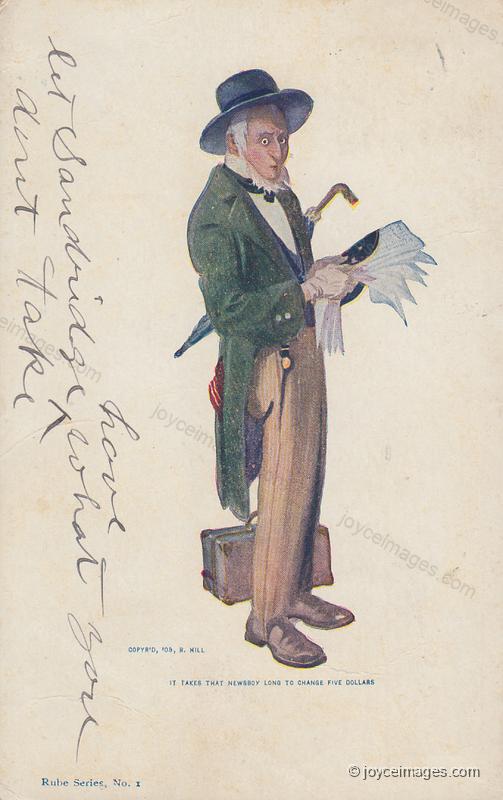 let Sandridge have what you
dont take
COPYR'D, '05, R. HILL
IT TAKES THAT NEWSBOY LONG TO CHANGE FIVE DOLLARS
Rube Series, No. 1
© joyceimages.com
joyceimages.com
joyceimages.com
joyceimages.com
joyceimages.com